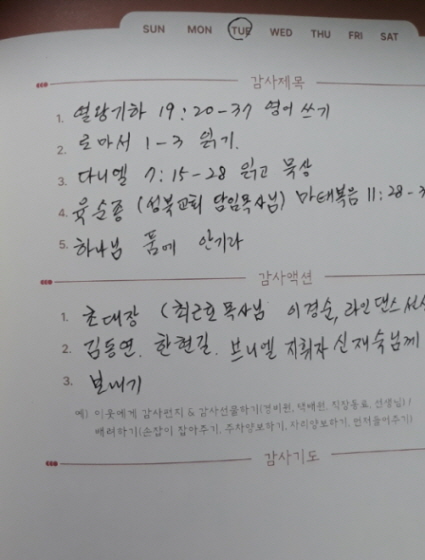 SUN MON TUE WED THU FRI SAT
감사제목
1. 열왕기하 19:20-37 영어 쓰기
2. 로마서 1-3 읽기.
3. 다니엘 7:15-28 읽고 묵상
4. 육순종 (성북교회 담임목사님) 마태복음 11:28-3
5. 하나님 품에 안기라
감사액션
1. 초대장 (최근호 목사님 이경순, 라인댄스
2. 김동연. 한현길. 브니엘 지휘자 신재숙님께
3. 보내기
예) 이웃에게 감사편지 & 감사선물하기(경비원, 택배원, 직장동료, 선생님) /
배려하기(손잡이 잡아주기, 주차양보하기, 자리양보하기, 먼저들어주기)
감사기도